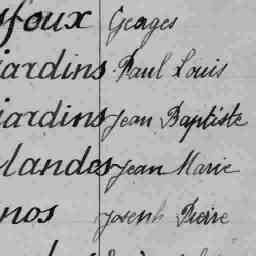 foux Georges
jardins Paul Louis
jardins Jean Baptiste
landes Jean Marie
nos Joseph Pierre